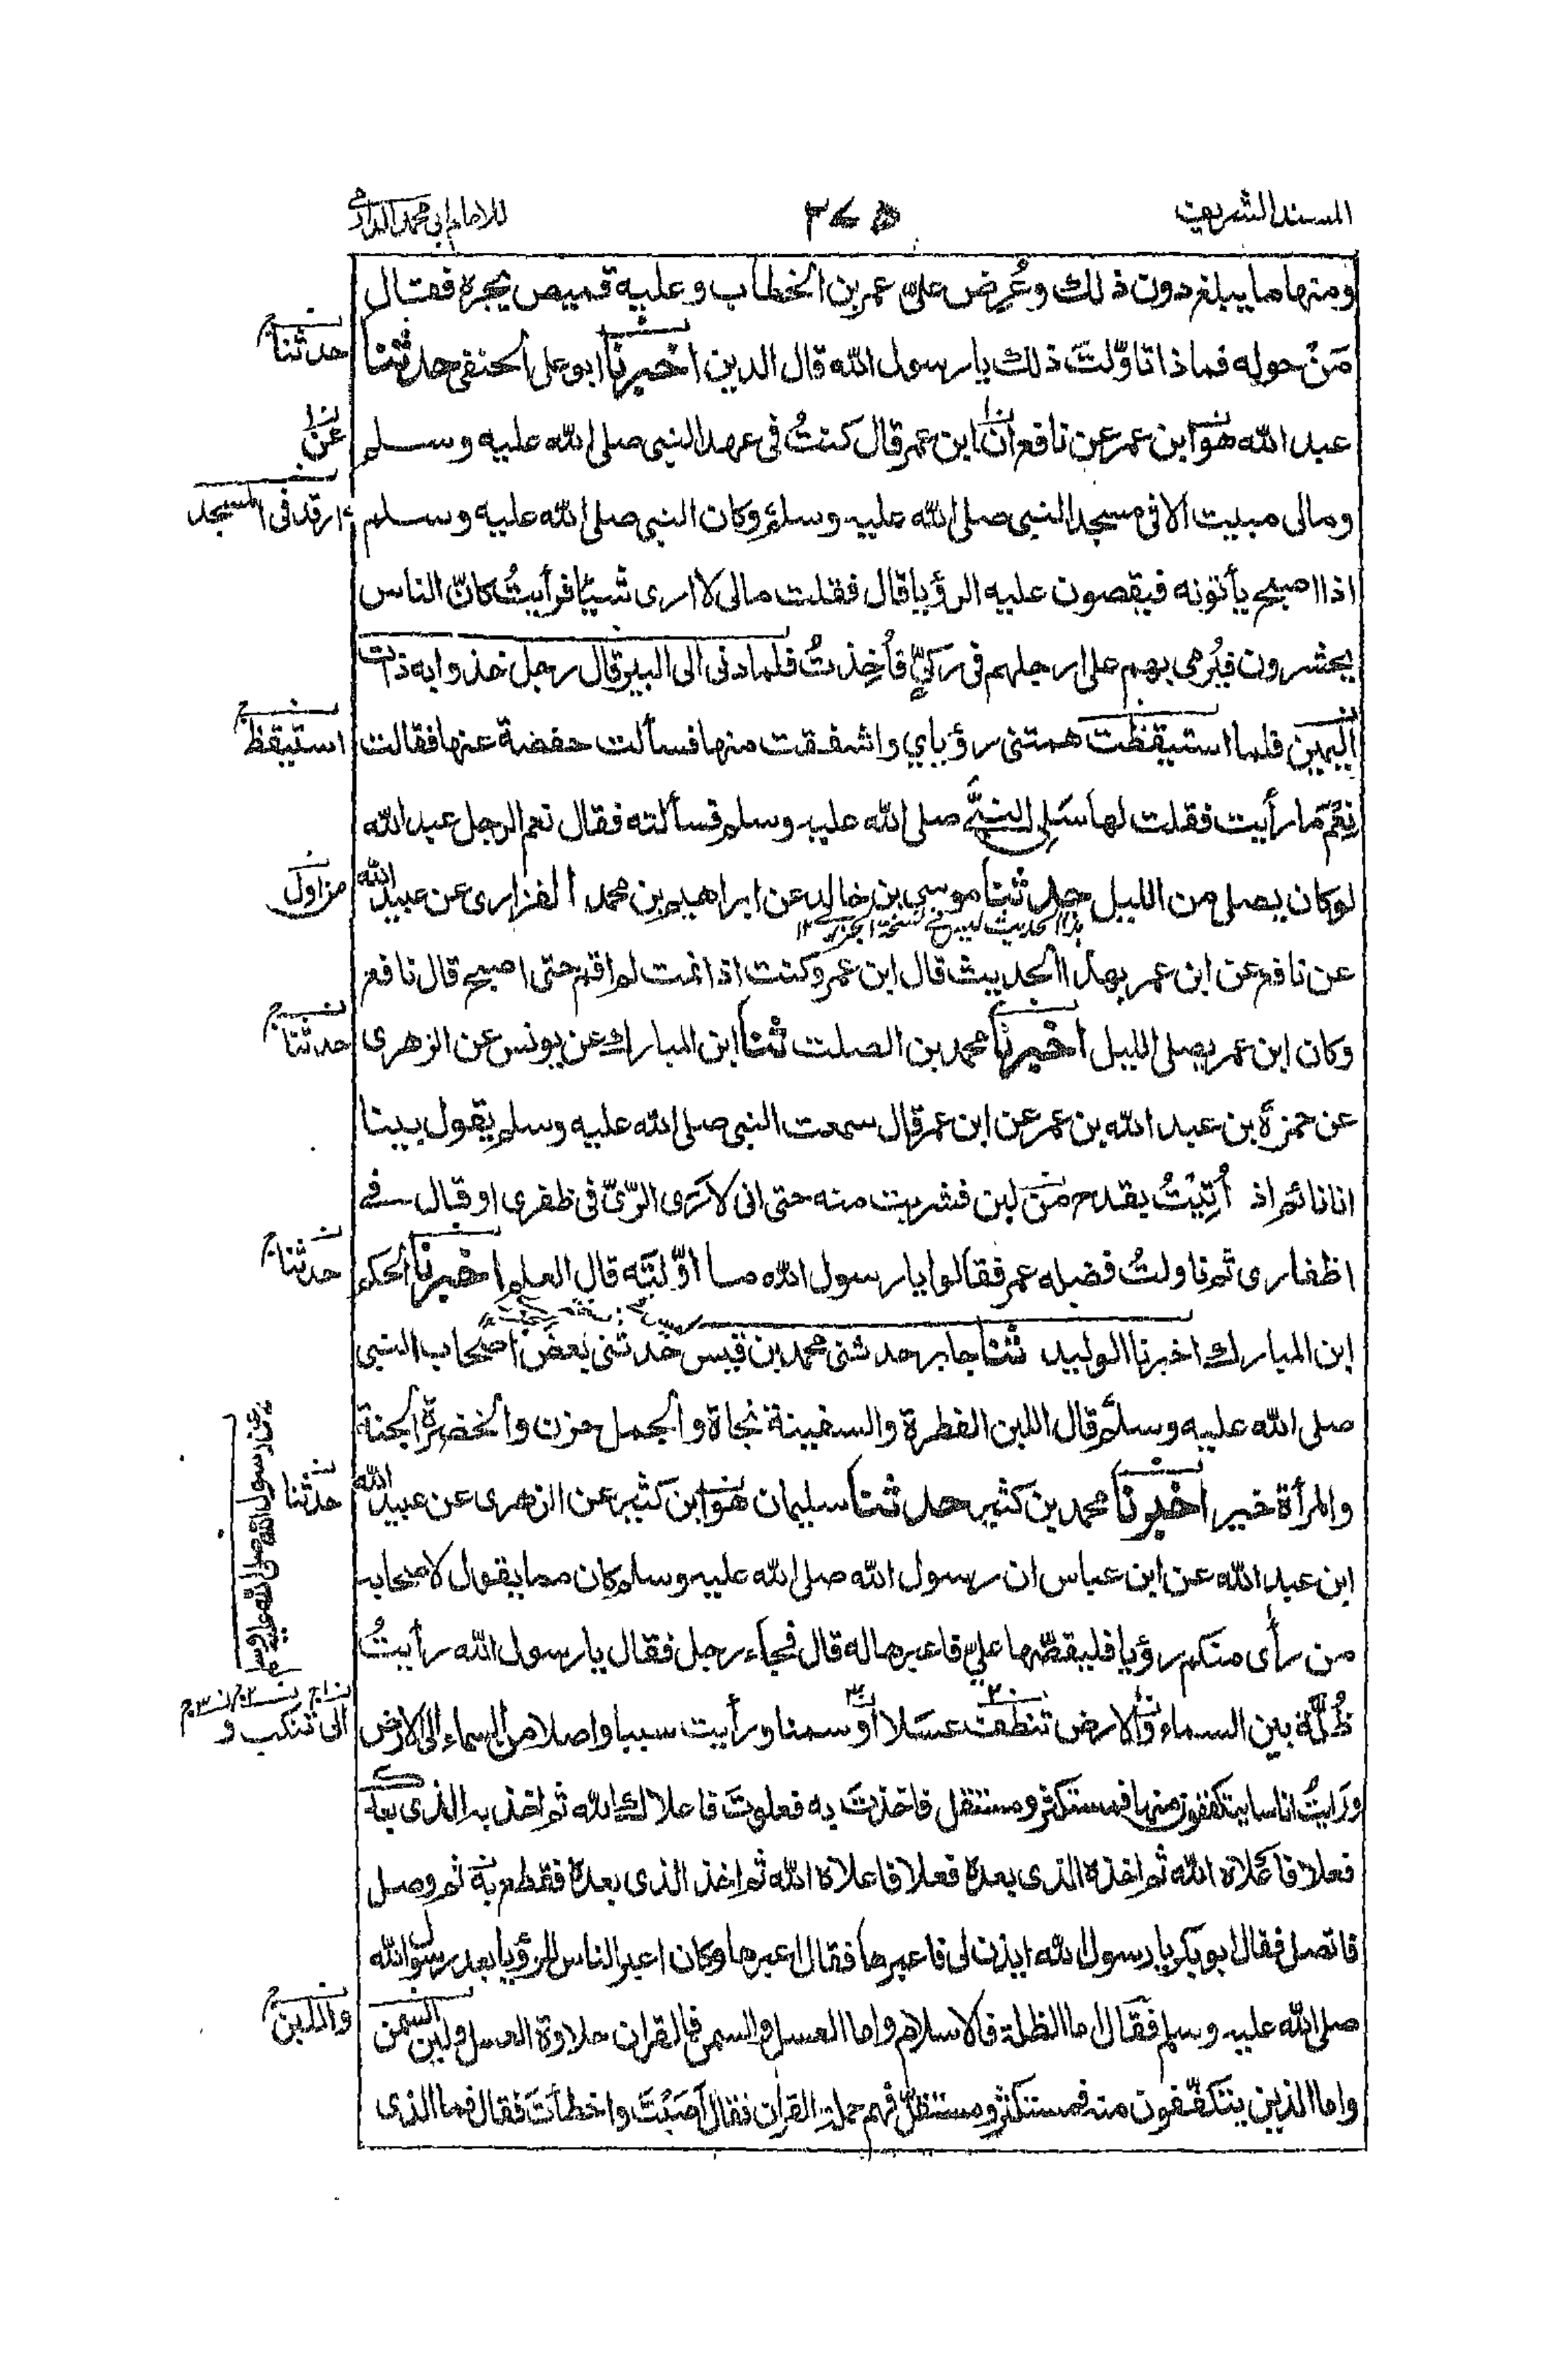 المسند الشريف
٢٧٥
للامام ابی محمد الدارمی
ومنها ما يبلغ دون ذلك وعُرِض علیّ عمر بن الخطاب وعليه قميص يجره فقال
مَنْ حوله فماذا تاوّلتَ ذلك يا رسول الله قال الدين اخبرنا ابو علی الحنفی حدثنا
حدثنا
عبد الله هو ابن عمر عن نافع ان ابن عمر قال كنتُ فی عهد النبی صلی الله عليه وسلم
عن
ومالی مبيت الا فی مسجد النبی صلی الله عليه وسلم وكان النبی صلی الله عليه وسلم
ارقد فی المسجد
اذا اصبح يأتونه فيقصون عليه الرؤيا قال فقلت مالی لا اری شيئا فرأيتُ كانّ الناس
يحشرون فيُرمی بهم علی ارجلهم فی ركیٍّ فاُخِذتُ فلما دنی الی البير قال رجل خذوا به ذات
اليمين فلما استيقظت همتنی رؤياي واشفقت منها فسألت حفصة عنها فقالت
استيقظ
نِعْمَ ما رأيت فقلت لها سَلِی النبیَّ صلی الله عليه وسلم فسألته فقال نعم الرجل عبد الله
لو كان يصلی من الليل حدثنا موسی بن خالد عن ابراهيم بن محمد الفزاری عن عبيد الله
من اول
هذا الحديث ليس فی نسخة الجزری ١٢
عن نافع عن ابن عمر بهذا الحديث قال ابن عمر وكنت اذا نمت لم اقم حتی اصبح قال نافع
وكان ابن عمر يصلی الليل اخبرنا محمد بن الصلت ثنا ابن المبارك عن يونس عن الزهری
حدثنا
عن حمزة بن عبد الله بن عمر عن ابن عمر قال سمعت النبی صلی الله عليه وسلم يقول بينا
انا نائم اذ اُتِيْتُ بقدح من لبن فشربت منه حتی انی لاَرَی الرّیّ فی ظفری او قال فی
اظفاری ثم ناولتُ فضله عمر فقالوا يا رسول الله ما اوّلتَه قال العلم اخبرنا الحكم
حدثنا
ابن المبارك اخبرنا الوليد ثنا جابر حدثنی محمد بن قيس حدثنی بعض اصحاب النبی
صلی الله عليه وسلم قال اللبن الفطرة والسفينة نجاة والجمل حزن والخضرة الجنة
عن رسول الله صلی الله عليه وسلم
والمرأة خير اخبرنا محمد بن كثير حدثنا سليمان هو ابن كثير عن الزهری عن عبيد الله
حدثنا
ابن عبد الله عن ابن عباس ان رسول الله صلی الله عليه وسلم كان مما يقول لاصحابه
من رأی منكم رؤيا فليقصّها علیّ فاعبرها له قال فجاء رجل فقال يا رسول الله رأيتُ
ظُلّة بين السماء والارض تنطف عسلا او سمنا ورأيت سببا واصلا من السماء الی الارض
الی تنكب و
ورَايتُ اناسا يتكففون منها فمستكثر ومستقل فاخذتَ به فعلوتَ فاعلاك الله ثم اخذ به الذی بعدك
فعلا فاعلاه الله ثم اخذه الذی بعده فعلا فاعلاه الله ثم اخذ الذی بعده فقطع به ثم وصل
فاتصل فقال ابو بكر يا رسول الله ايذن لی فاعبرها فقال اعبرها وكان اعبر الناس للرؤيا بعد رسول الله
صلی الله عليه وسلم فقال اما الظلة فالاسلام واما العسل والسمن فالقران حلاوة العسل ولين السمن
واللبن
واما الذين يتكفّفون منه فمستكثر ومستقلّ فهم حملة القران فقال اَصَبْتَ واخطأتَ فقال فما الذی